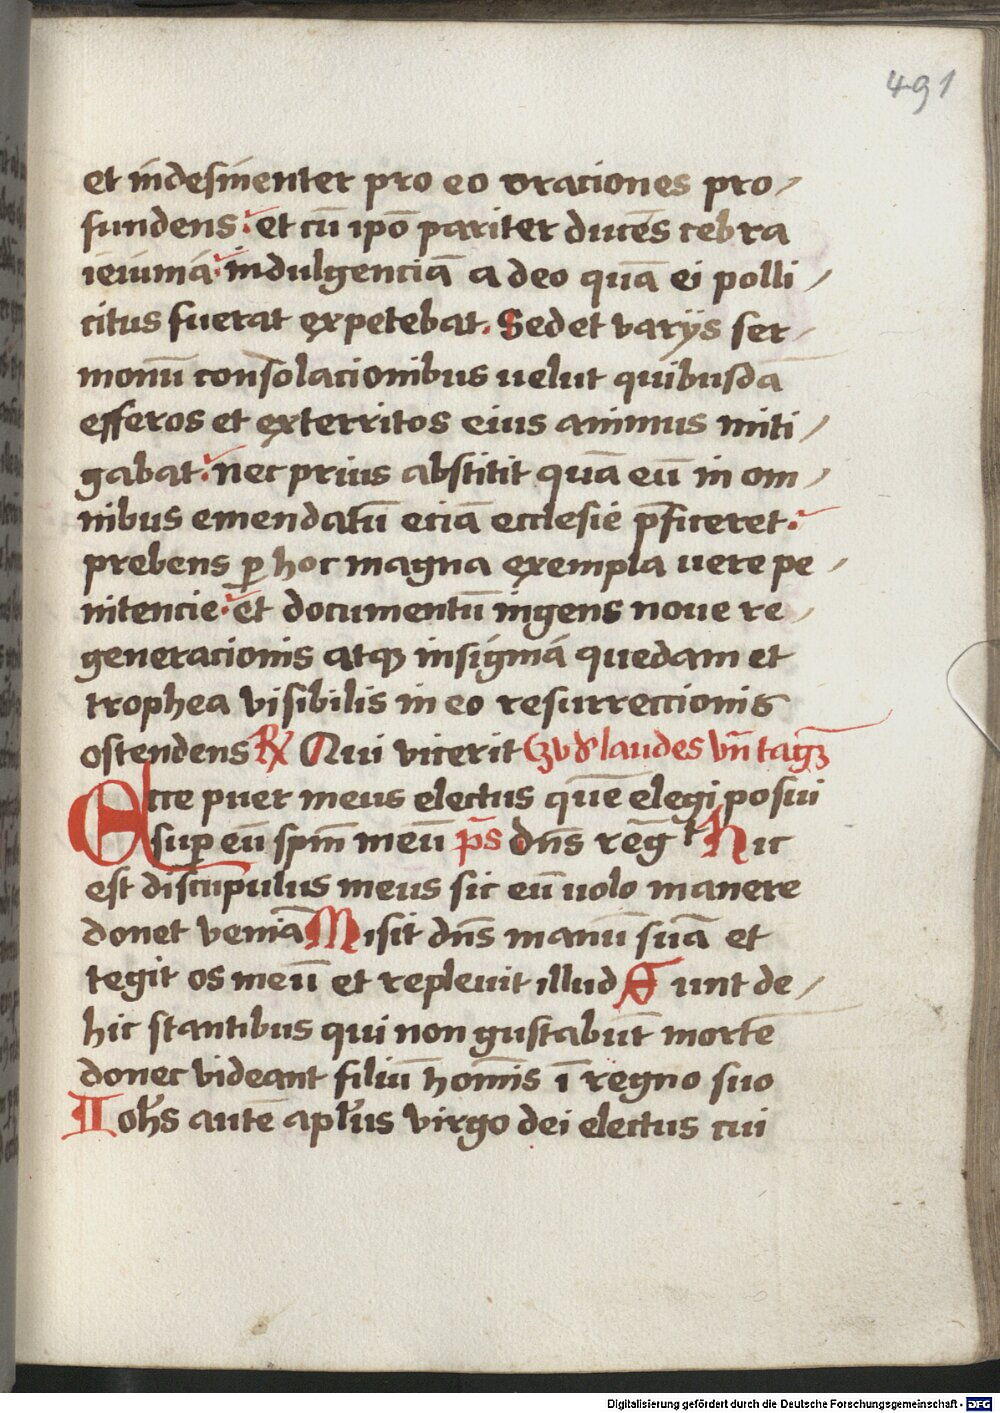 491
et indesinenter pro eo oraciones pro/
fundens: et cū ip̄o pariter ducēs crebra
ieiuniā: indulgenciā a deo quā ei polli/
citus fuerat expetebat. Sed et varijs ser/
monū consolacionibus uelut quibusdā
efferos et exterritos eius animus miti/
gabat: nec prius abstitit quā eū in om/
nibus emendatū eciā ecclesie p̄ficeret.
prebens ꝑ hoc magna exempla uere pe/
nitencie: et documentū ingens noue re/
generacionis atqꝫ insignia quedam et
trophea visibilis in eo resurreccionis
ostendens ℟ Qui vicerit Czu d' laudes vn̄ tagꝫ
Ecce puer meus electus quē elegi posui
suꝑ eū spm̄ meū p̄s dn̄s rēg Hic
est discipulus meus sic eū uolo manere
donet veniā Misit dn̄s manū suā et
tegit os meū et repleuit illud Sunt de/
hic stantibus qui non gustabūt mortē
donec videant filiū homīs ī regno suo
Ioh̄s autē apl̄us virgo dei electus cui
Digitalisierung gefördert durch die Deutsche Forschungsgemeinschaft - DFG